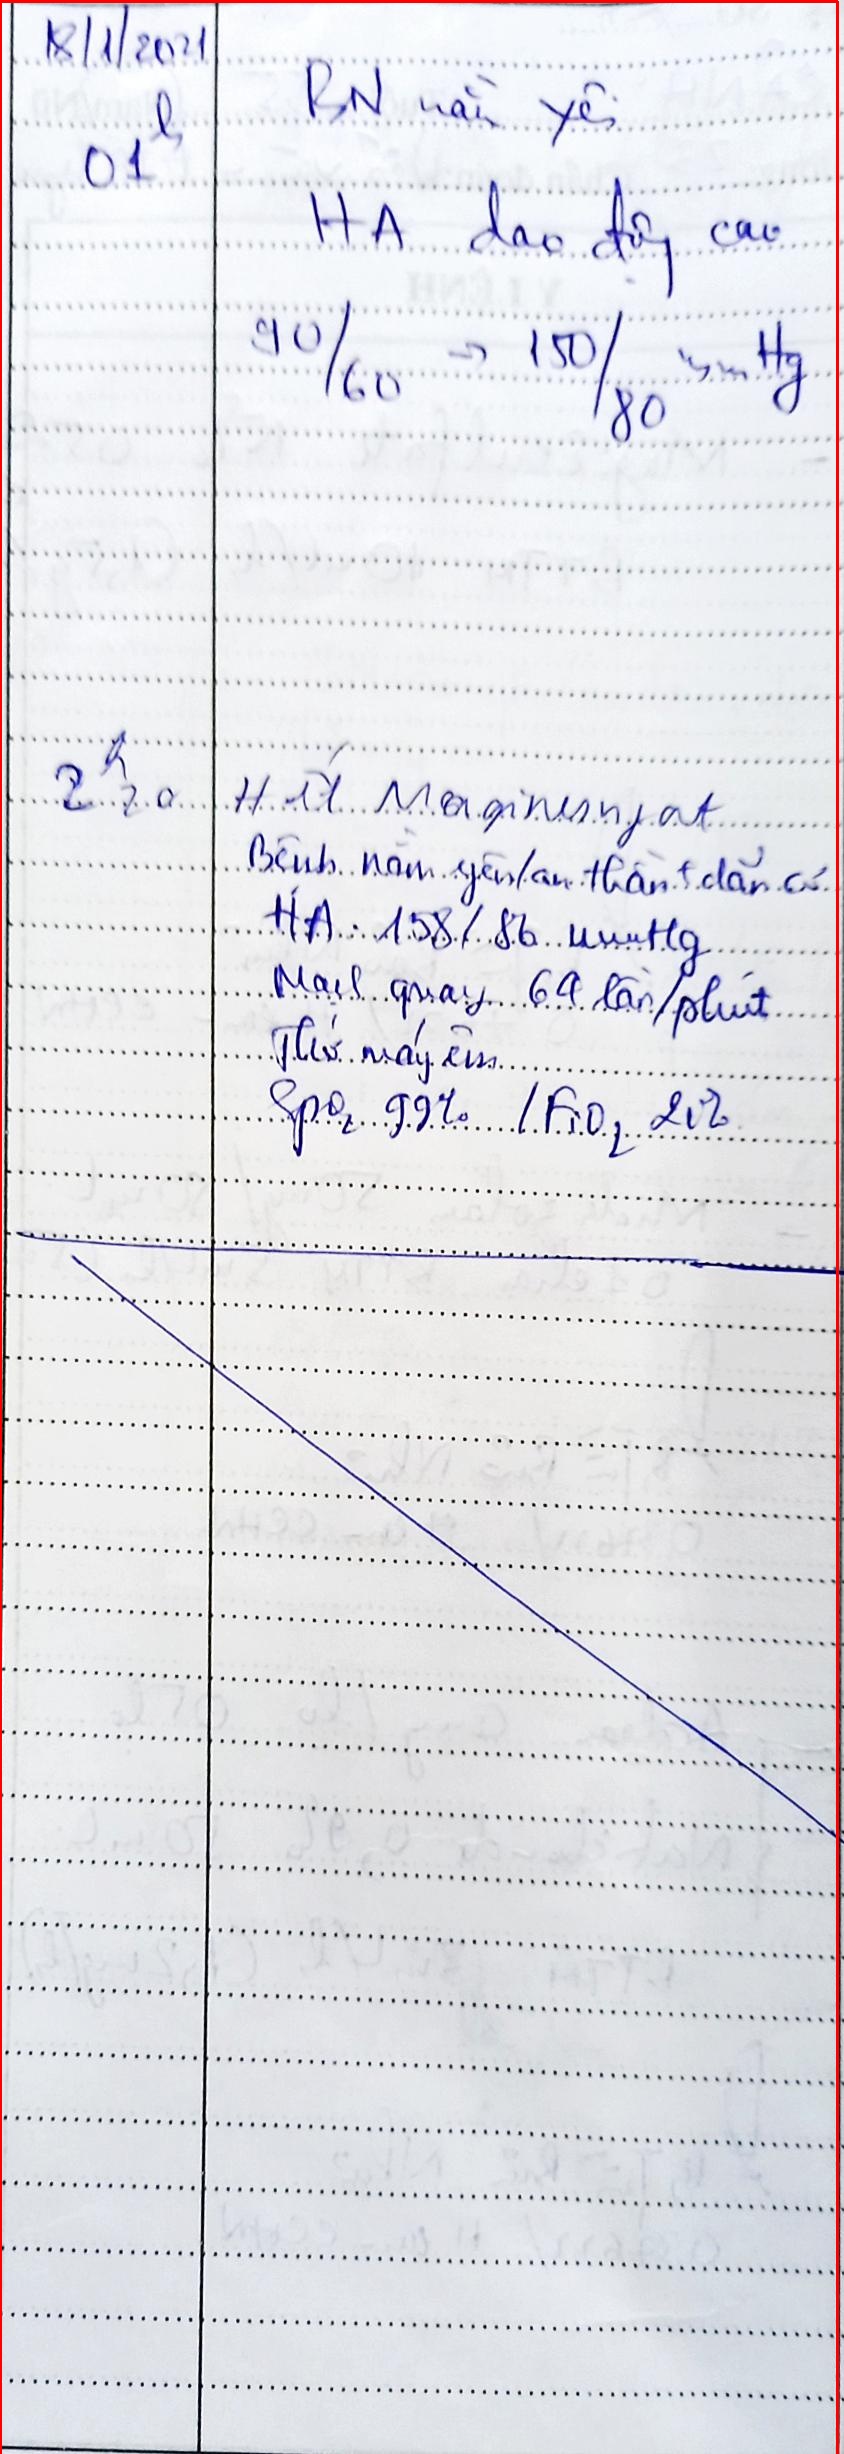 18/1/2021
01h
BN nằm yên
HA dao động cao
90/60 → 150/80 mmHg
2h20 Hết Maginesnjat
Bệnh nằm yên/an thần + dãn cơ
HA: 158/86 mmHg
Mạch quay 69 lần/phút
Thở máy êm
SpO2 99% /FiO2